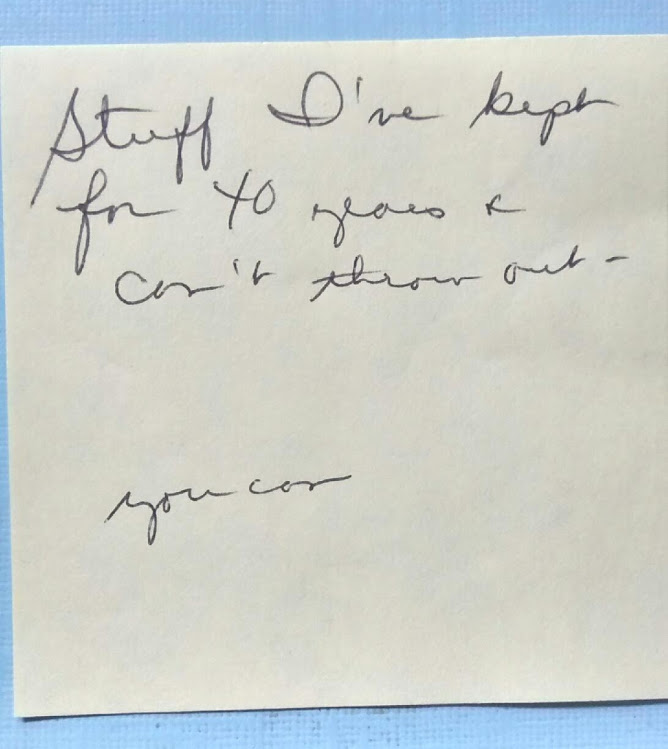 Stuff I've kept
for 40 years &
can't throw out -
you can